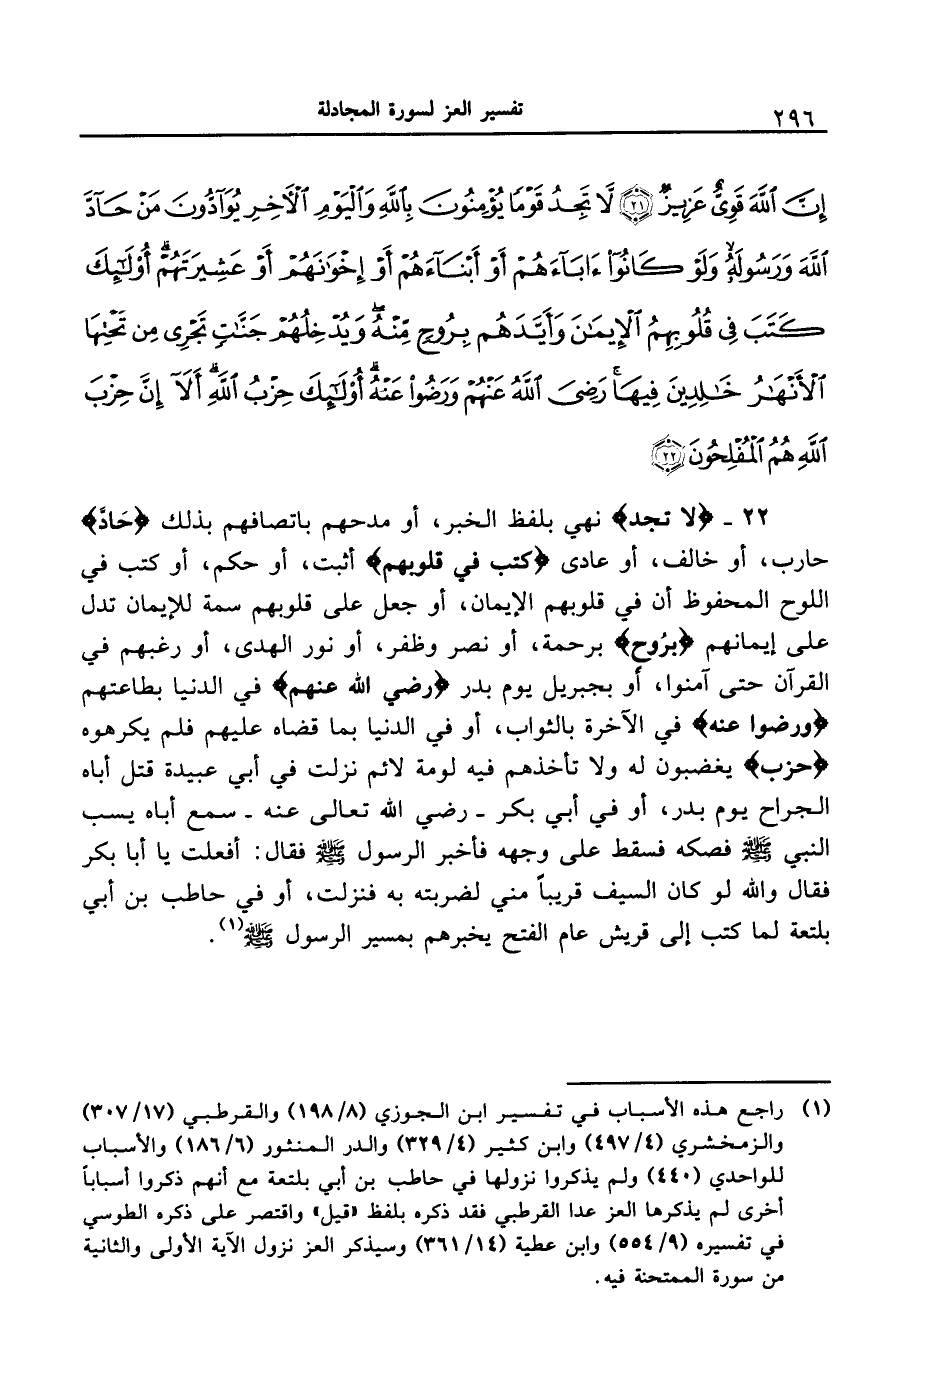 ٢٩٦
تفسير العز لسورة المجادلة
إِنَّ ٱللَّهَ قَوِىٌّ عَزِيزٌ ﴿٢١﴾ لَّا تَجِدُ قَوْمًا يُؤْمِنُونَ بِٱللَّهِ وَٱلْيَوْمِ ٱلْأَخِرِ يُوَآدُّونَ مَنْ حَآدَّ
ٱللَّهَ وَرَسُولَهُۥ وَلَوْ كَانُوٓا۟ ءَابَآءَهُمْ أَوْ أَبْنَآءَهُمْ أَوْ إِخْوَٰنَهُمْ أَوْ عَشِيرَتَهُمْ ۚ أُو۟لَٰٓئِكَ
كَتَبَ فِى قُلُوبِهِمُ ٱلْإِيمَٰنَ وَأَيَّدَهُم بِرُوحٍ مِّنْهُ ۖ وَيُدْخِلُهُمْ جَنَّٰتٍ تَجْرِى مِن تَحْتِهَا
ٱلْأَنْهَٰرُ خَٰلِدِينَ فِيهَا ۚ رَضِىَ ٱللَّهُ عَنْهُمْ وَرَضُوا۟ عَنْهُ ۚ أُو۟لَٰٓئِكَ حِزْبُ ٱللَّهِ ۚ أَلَآ إِنَّ حِزْبَ
ٱللَّهِ هُمُ ٱلْمُفْلِحُونَ ﴿٢٢﴾
٢٢ ـ ﴿لا تجد﴾ نهي بلفظ الخبر، أو مدحهم باتصافهم بذلك ﴿حَادَّ﴾
حارب، أو خالف، أو عادى ﴿كتب في قلوبهم﴾ أثبت، أو حكم، أو كتب في
اللوح المحفوظ أن في قلوبهم الإيمان، أو جعل على قلوبهم سمة للإيمان تدل
على إيمانهم ﴿بِرُوحٍ﴾ برحمة، أو نصر وظفر، أو نور الهدى، أو رغبهم في
القرآن حتى آمنوا، أو بجبريل يوم بدر ﴿رضي الله عنهم﴾ في الدنيا بطاعتهم
﴿ورضوا عنه﴾ في الآخرة بالثواب، أو في الدنيا بما قضاه عليهم فلم يكرهوه
﴿حزب﴾ يغضبون له ولا تأخذهم فيه لومة لائم نزلت في أبي عبيدة قتل أباه
الجراح يوم بدر، أو في أبي بكر ـ رضي الله تعالى عنه ـ سمع أباه يسب
النبي ﷺ فصكه فسقط على وجهه فأخبر الرسول ﷺ فقال: أفعلت يا أبا بكر
فقال والله لو كان السيف قريباً مني لضربته به فنزلت، أو في حاطب بن أبي
بلتعة لما كتب إلى قريش عام الفتح يخبرهم بمسير الرسول ﷺ(١).
(١) راجع هذه الأسباب في تفسير ابن الجوزي (١٩٨/٨) والقرطبي (٣٠٧/١٧)
والزمخشري (٤٩٧/٤) وابن كثير (٣٢٩/٤) والدر المنثور (١٨٦/٦) والأسباب
للواحدي (٤٤٠) ولم يذكروا نزولها في حاطب بن أبي بلتعة مع أنهم ذكروا أسباباً
أخرى لم يذكرها العز عدا القرطبي فقد ذكره بلفظ «قيل» واقتصر على ذكره الطوسي
في تفسيره (٥٥٤/٩) وابن عطية (٣٦١/١٤) وسيذكر العز نزول الآية الأولى والثانية
من سورة الممتحنة فيه.